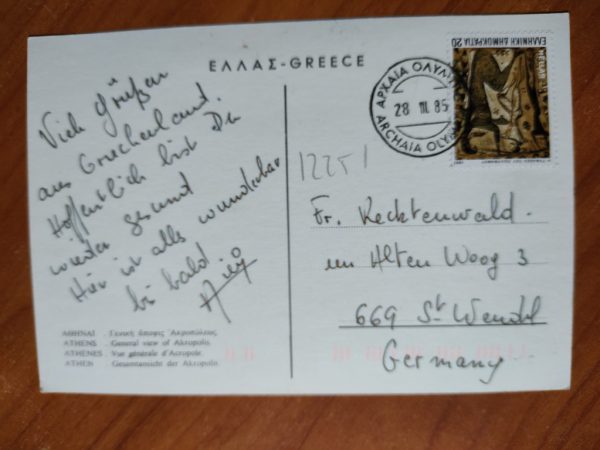 ΕΛΛΑΣ-GREECE
Viele Grüßen
aus Griechenland.
Hoffentlich bist Du
wieder gesund
Hier ist alles wunderbar
bis bald
ΑΘΗΝΑΙ . Γενική άποψις Ἀκροπόλεως.
ATHENS . General view of Akropolis.
ATHENES . Vue générale d'Acropole.
ATHEN . Gesamtansicht der Akropolis.
ΕΛΛΗΝΙΚΗ ΔΗΜΟΚΡΑΤΙΑ 20
HELLAS
ΑΡΧΑΙΑ ΟΛΥΜΠ
28 III 85
ARCHAIA OLYM
12251
Fr. Recktenwald.
im Alten Woog 3
669 St. Wendel
Germany